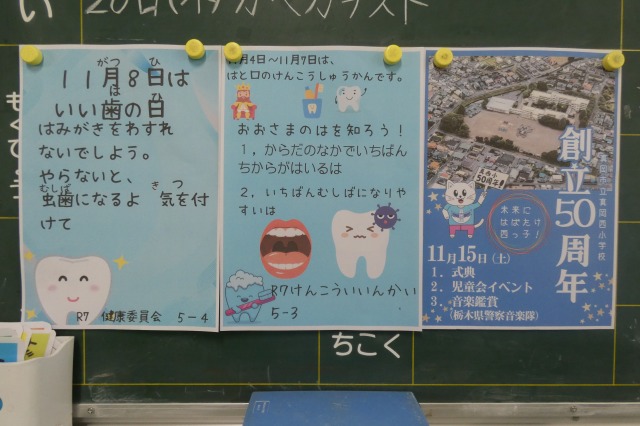 い
11月8日は
がつ ひ
いい歯の日
は ひ
はみがきをわすれ
ないでしよう。
やらないと、
虫歯になるよ 気を付
むしば き つ
けて
R7 健康委員会 5-4
11月4日～11月7日は、
はと口のけんこうしゅうかんです。
おおさまのはを知ろう！
1，からだのなかでいちばん
ちからがはいるは
2，いちばんむしばになりや
すいは
R7けんこういいんかい
5-3
真岡市立真岡西小学校
創立50周年
50周年！
未来に
はばたけ
西っ子！
11月15日（土）
1．式典
2．児童会イベント
3．音楽鑑賞
（栃木県警察音楽隊）
ちこく